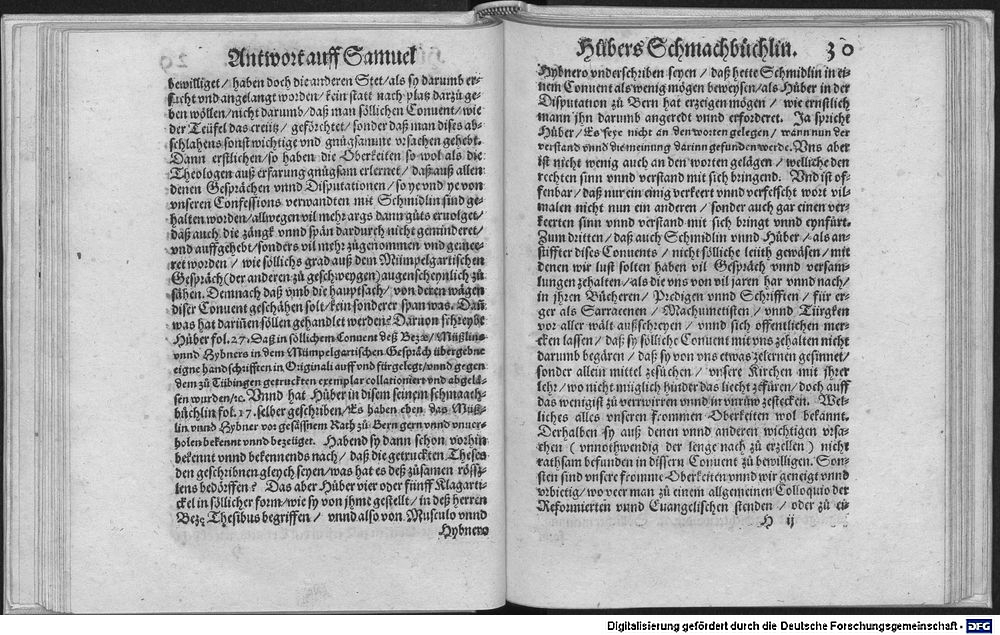 Antwort auff Samuel
bewilliget / haben doch die anderen Stet / als sy darumb er-
sucht vnd angelangt worden / kein statt nach platz darzů ge-
ben wöllen / nicht darumb / daß man söllichen Conuent / wie
der Teüfel das creütz / geförchtet / sonder daß man dises ab-
schlahens sonst wichtige vnd gnůgsamme vrsachen gehebt.
Dann erstlichen / so haben die Oberkeiten so wol als die
Theologen auß erfarung gnůgsam erlernet / daß auß allen
denen Gesprächen vnnd Disputationen / so ye vnd ye von
vnseren Confessions verwandten mit Schmidlin sind ge-
halten worden / allwegen vil mehr args dann gůts eruolget /
daß auch die zångk vnnd spån dardurch nicht geminderet /
vnd auffgehebt / sonders vil mehr zůgenommen vnd gemee-
ret worden / wie söllichs grad auß dem Mümpelgartischen
Gespräch (der anderen zů geschweygen) augenscheynlich zů
sähen. Demnach daß vmb die hauptsach / von deren wägen
diser Conuent geschähen solt / kein sonderer span was. Dañ
was hat dariñen söllen gehandlet werden? Daruon schreybt
Hüber fol. 27. Daß in söllichem Conuent deß Bezæ / Müßlins
vnnd Hybners in dem Mümpelgartischen Gespräch übergebne
eigne handschrifften in Originali auff vnd fürgelegt / vnnd gegen
dem zů Tübingen getruckten exemplar collationiert vnd abgelå-
sen wurden / ⁊c. Vnnd hat Hüber in disem seinem schmaach-
büchlin fol. 17. selber geschriben / Es haben eben das Müß-
lin vnnd Hybner vor gesäßnem Rath zů Bern gern vnnd vnuer-
holen bekennt vnnd bezeüget. Habend sy dann schon vorhin
bekennt vnnd bekennends nach / daß die getruckten Theses
den geschribnen gleych seyen / was hat es deß zůsamen rössz-
lens bedörffen? Das aber Hüber vier oder fünff Klagarti-
ckel in söllicher form / wie sy von jhme gestellt / in deß herren
Bezę Thesibus begriffen / vnnd also von Musculo vnnd
Hybnero
Hübers Schmachbüchlin. 30
Hybnero vnderschriben seyen / daß hette Schmidlin in ei-
nem Conuent als wenig mögen beweysen / als Hüber in der
Disputation zů Bern hat erzeigen mögen / wie ernstlich
mann jhn darumb angeredt vnnd erforderet. Ja spricht
Hüber / Es seye nicht an den worten gelegen / wann nun der
verstand vnnd die meinung darinn gefunden werde. Vns aber
ist nicht wenig auch an den worten gelägen / welliche den
rechten sinn vnnd verstand mit sich bringend. Vnd ist of-
fenbar / daß nur ein einig verkeert vnnd verfelscht wort vil-
malen nicht nun ein anderen / sonder auch gar einen ver-
keerten sinn vnnd verstand mit sich bringt vnnd eynfürt.
Zum dritten / daß auch Schmidlin vnnd Hüber / als an-
stiffter dises Conuents / nicht sölliche leüth gewäsen / mit
denen wir lust solten haben vil Gespräch vnnd versam-
lungen zehalten / als die vns von vil jaren har vnnd nach /
in jhren Bücheren / Predigen vnnd Schrifften / für er-
ger als Sarracenen / Machumetisten / vnnd Türgken
vor aller wält außschreyen / vnnd sich offentlichen mer-
cken lassen / daß sy sölliche Conuent mit vns zehalten nicht
darumb begären / daß sy von vns etwas zelernen gesinnet /
sonder allein mittel zesůchen / vnsere Kirchen mit jhrer
lehr / wo nicht müglich hinder das liecht zefüren / doch auff
das wenigist zů verwirren vnnd in vnrůw zestecken. Wel-
liches alles vnseren frommen Oberkeiten wol bekannt.
Derhalben sy auß denen vnnd anderen wichtigen vrsa-
chen (vnnothwendig der lenge nach zů erzellen) nicht
rathsam befunden in dissern Conuent zů bewilligen. Son-
sten sind vnsere fromme Oberkeiten vnnd wir geneigt vnnd
vrbietig / wo veer man zů einem allgemeinen Colloquio der
Reformierten vnnd Euangelischen stenden / oder zů ei-
H ij
Digitalisierung gefördert durch die Deutsche Forschungsgemeinschaft - DFG